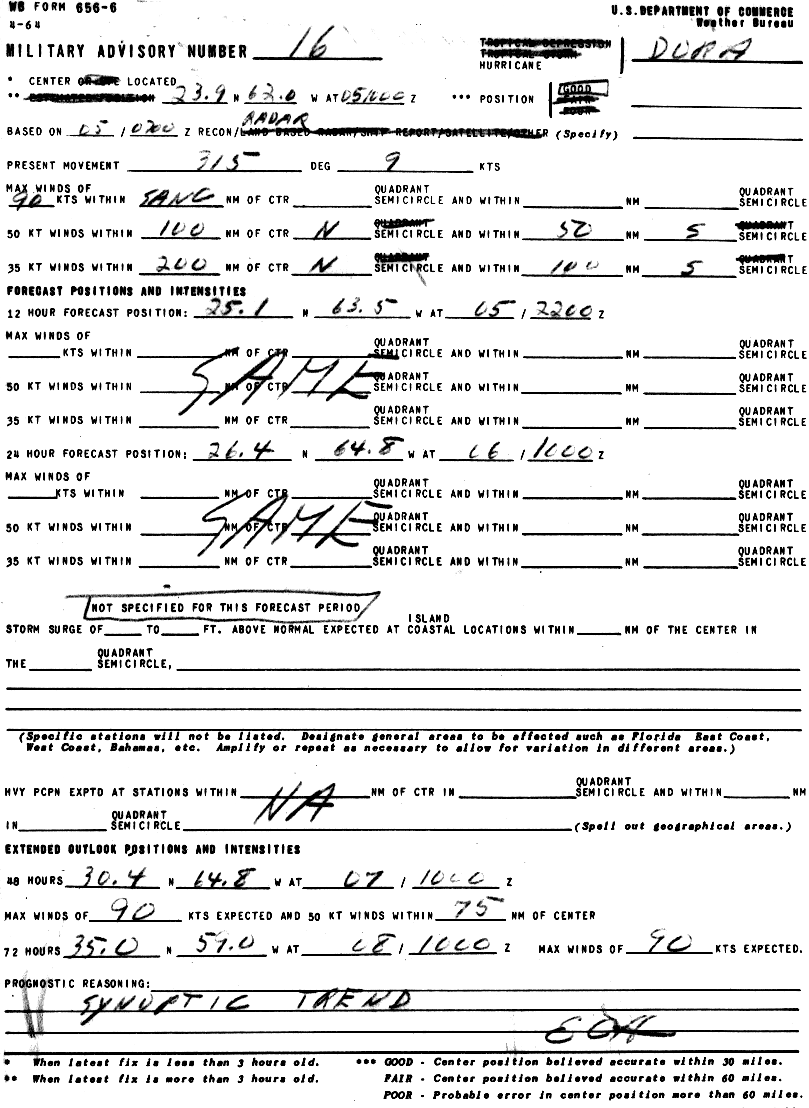 WB FORM 656-6 U.S.DEPARTMENT OF COMMERCE
4-64 Weather Bureau
MILITARY ADVISORY NUMBER 16 TROPICAL DEPRESSION TROPICAL STORM HURRICANE DORA
* CENTER LOCATED
** ESTIMATED POSITION 23.9 N 62.0 W AT 05/1000 Z *** POSITION GOOD FAIR POOR
BASED ON 05 / 0700 Z RECON/LAND BASED RADAR/SHIP REPORT/SATELLITE/OTHER (Specify) RADAR
PRESENT MOVEMENT 315 DEG 9 KTS
MAX WINDS OF QUADRANT QUADRANT
90 KTS WITHIN NM OF CTR SEMICIRCLE AND WITHIN NM SEMICIRCLE
QUADRANT QUADRANT
50 KT WINDS WITHIN 100 NM OF CTR N SEMICIRCLE AND WITHIN 50 NM S SEMICIRCLE
QUADRANT QUADRANT
35 KT WINDS WITHIN 200 NM OF CTR N SEMICIRCLE AND WITHIN 100 NM S SEMICIRCLE
FORECAST POSITIONS AND INTENSITIES
12 HOUR FORECAST POSITION: 25.1 N 63.5 W AT 05 / 2200 Z
MAX WINDS OF QUADRANT QUADRANT
KTS WITHIN NM OF CTR SEMICIRCLE AND WITHIN NM SEMICIRCLE
SAME
QUADRANT QUADRANT
50 KT WINDS WITHIN NM OF CTR SEMICIRCLE AND WITHIN NM SEMICIRCLE
QUADRANT QUADRANT
35 KT WINDS WITHIN NM OF CTR SEMICIRCLE AND WITHIN NM SEMICIRCLE
24 HOUR FORECAST POSITION: 26.4 N 64.8 W AT 06 / 1000 Z
MAX WINDS OF QUADRANT QUADRANT
KTS WITHIN NM OF CTR SEMICIRCLE AND WITHIN NM SEMICIRCLE
SAME
QUADRANT QUADRANT
50 KT WINDS WITHIN NM OF CTR SEMICIRCLE AND WITHIN NM SEMICIRCLE
QUADRANT QUADRANT
35 KT WINDS WITHIN NM OF CTR SEMICIRCLE AND WITHIN NM SEMICIRCLE
NOT SPECIFIED FOR THIS FORECAST PERIOD
ISLAND
STORM SURGE OF TO FT. ABOVE NORMAL EXPECTED AT COASTAL LOCATIONS WITHIN NM OF THE CENTER IN
QUADRANT
THE SEMICIRCLE,
(Specific stations will not be listed. Designate general areas to be affected such as Florida East Coast,
West Coast, Bahamas, etc. Amplify or repeat as necessary to allow for variation in different areas.)
QUADRANT
HVY PCPN EXPTD AT STATIONS WITHIN NA NM OF CTR IN SEMICIRCLE AND WITHIN NM
QUADRANT
IN SEMICIRCLE (Spell out geographical areas.)
EXTENDED OUTLOOK POSITIONS AND INTENSITIES
48 HOURS 30.4 N 64.8 W AT 07 / 1000 Z
MAX WINDS OF 90 KTS EXPECTED AND 50 KT WINDS WITHIN 75 NM OF CENTER
72 HOURS 35.0 N 59.0 W AT 08 / 1000 Z MAX WINDS OF 90 KTS EXPECTED.
PROGNOSTIC REASONING:
SYNOPTIC TREND
* When latest fix is less than 3 hours old. *** GOOD - Center position believed accurate within 30 miles.
** When latest fix is more than 3 hours old. FAIR - Center position believed accurate within 60 miles.
POOR - Probable error in center position more than 60 miles.